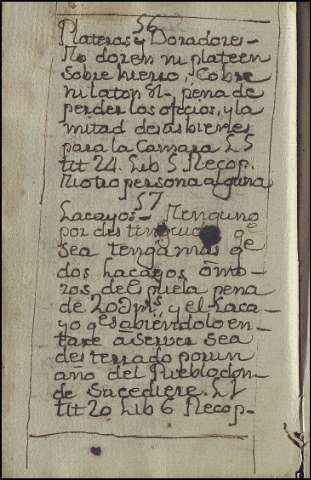 56
Plateros y Doradores-
No doren ni plateen
sobre hierro, Cobre
ni laton &. pena de
perder los oficios, y la
mitad de sus bienes
para la Camara L 5
tit 24. Lib 5 Recop.
Ni otro persona alguna
57
Lacayos- Ninguno
por des tincion qe
sea tenga mas qe
dos Lacayos o mo-
zos de espuela pena
de 20 D mrs y el Laca-
yo qe sabiendolo en-
trare a servir sea
desterrado por un
año del Pueblo don-
de sucediere. L 1
tit 20 Lib 6 Recop-